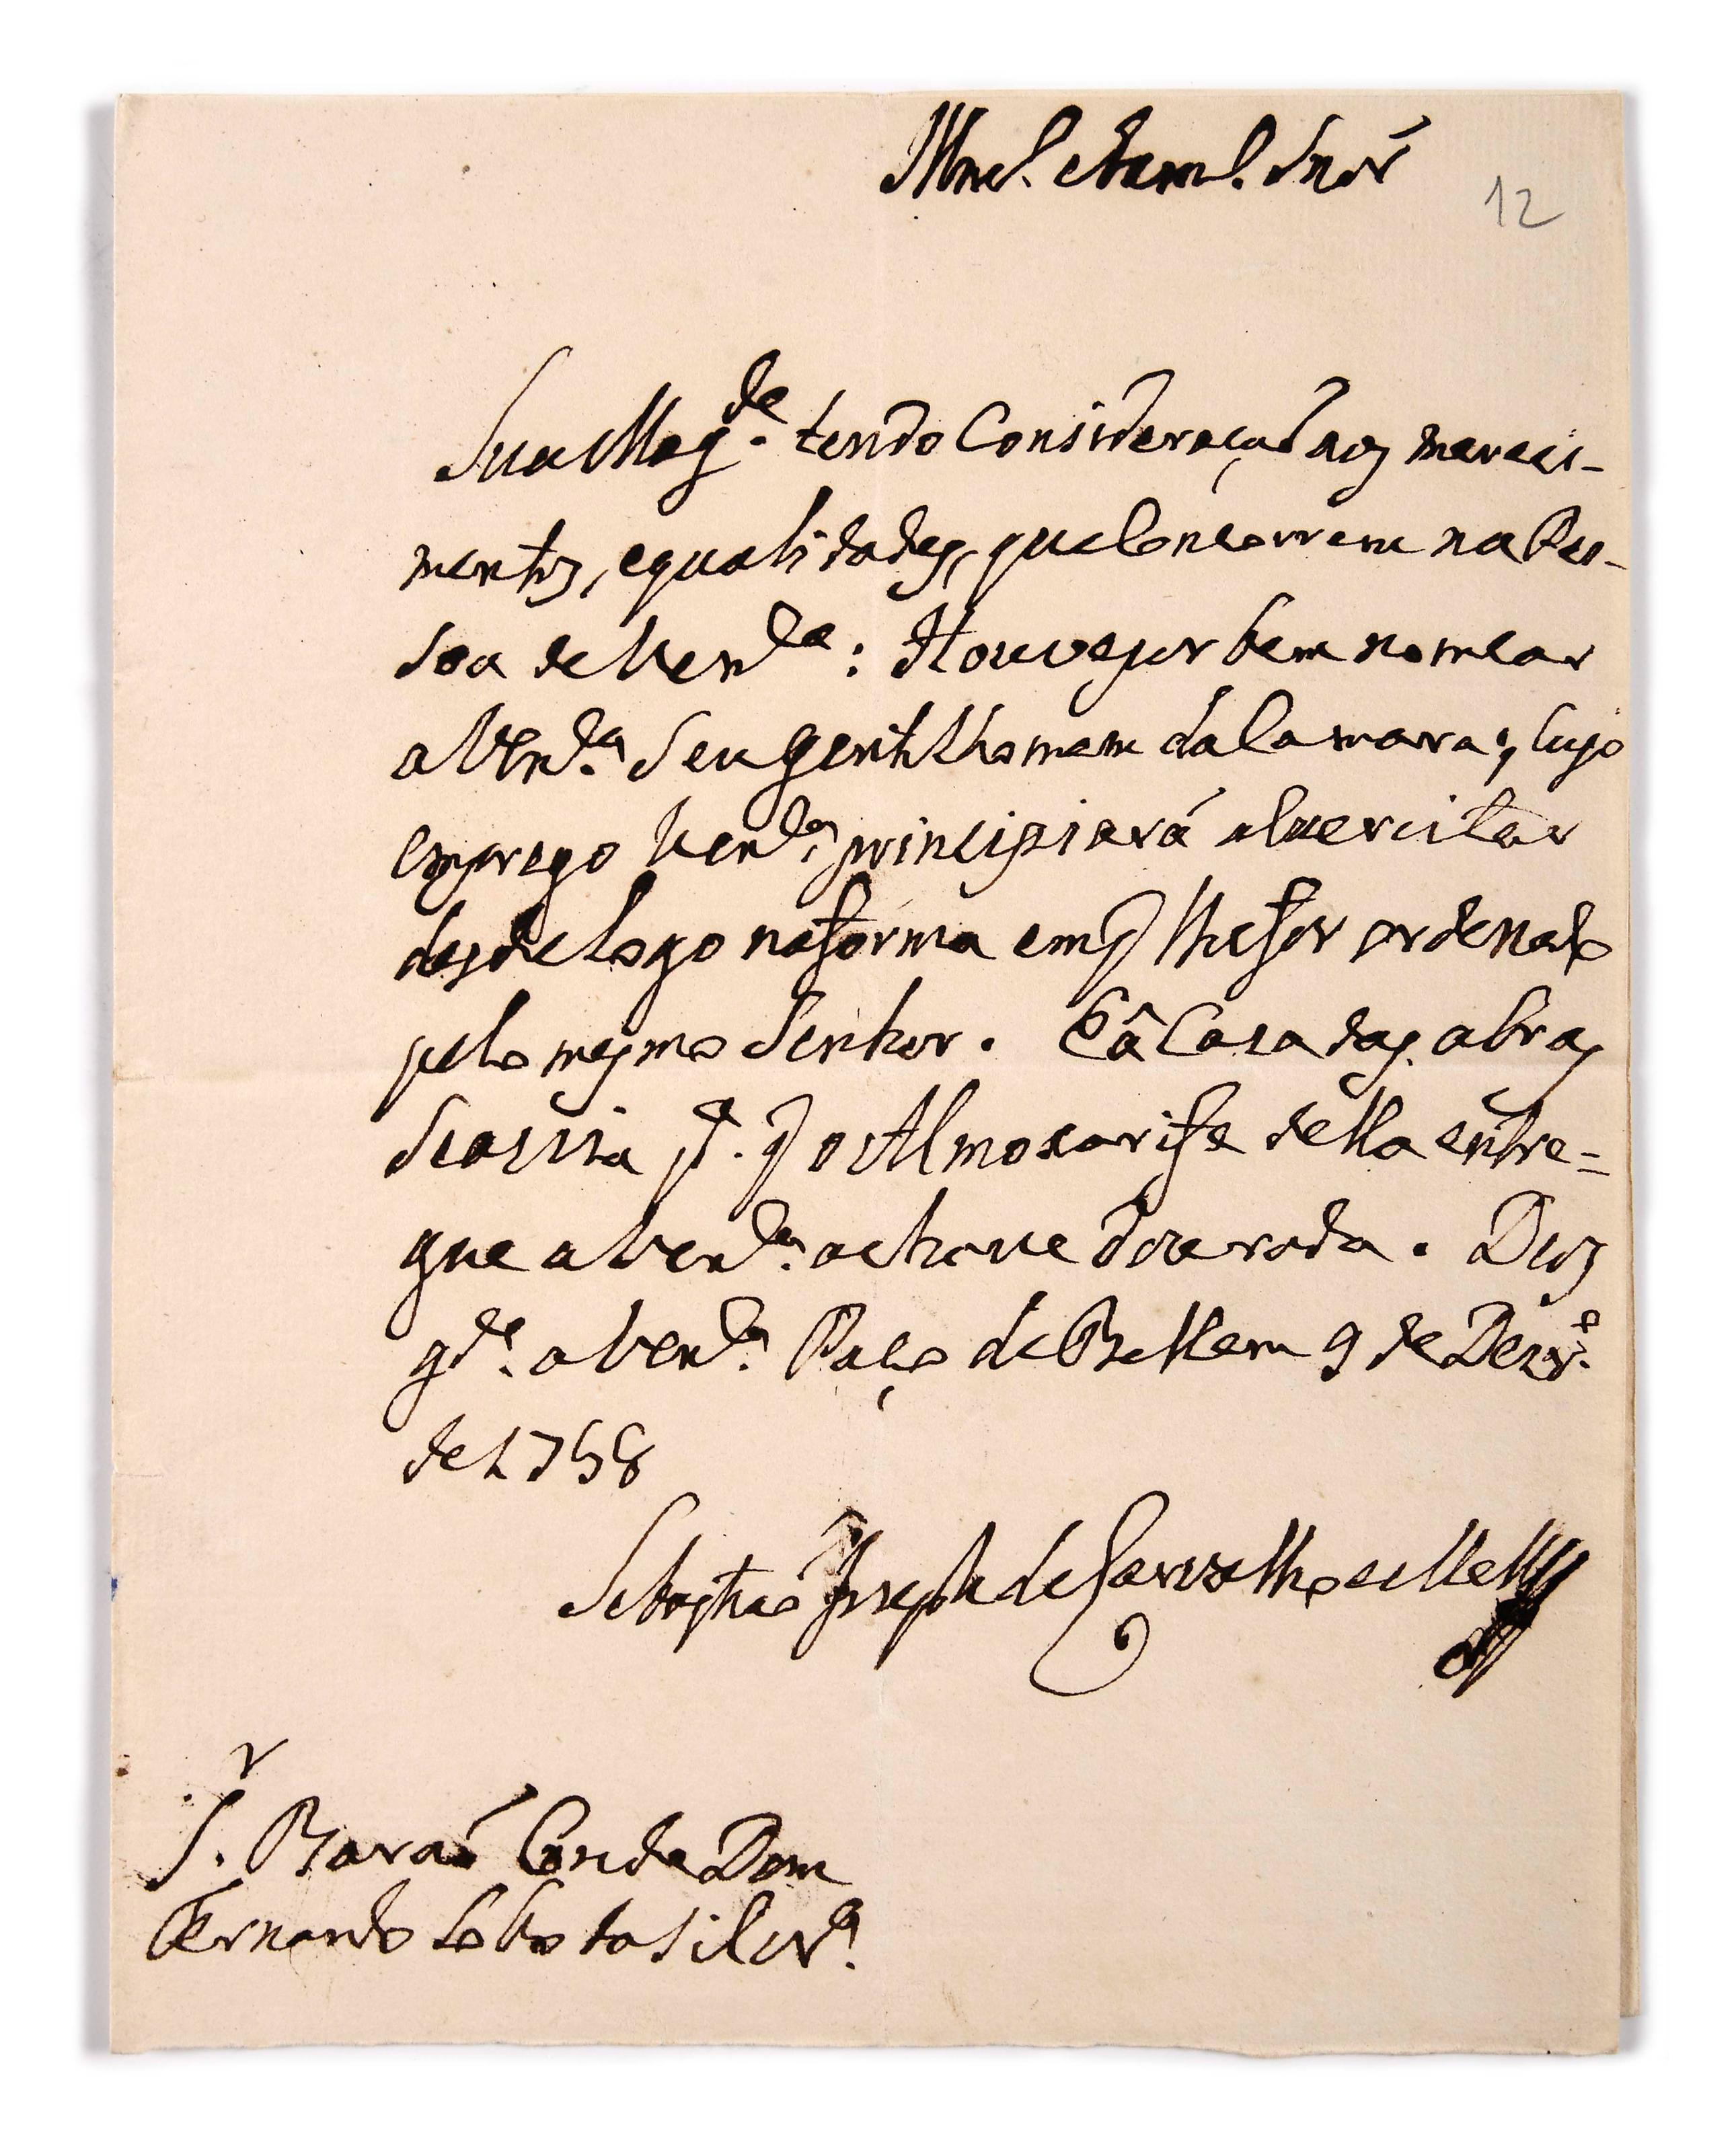 Illmo. e Exmo. Snor
12
Sua Magde. tendo Consideraçaõ aos mereci-
mentos, e qualidades, que Concorrem na Pes-
soa de V. Exª: Houve por bem nomear
a V. Exª. Seu Gentilhomem da Camara; Cujo
emprego V. Exª. principiará a exercitar
desde logo na forma em q̃ lhe for ordenado
pelo mesmo Senhor. E â Casa das obras
se avisa pª. q̃ o Almoxarife della entre=
gue a V. Exª. a chave dourada. Deos
gde. a V. Exª. Paço de Bellem 9 de Dezro.
de 1758
Sebastiaõ Joseph de Carvalho e Mello
Sr. Baraõ Conde Dom
Fernando Lobo da Silvrª.